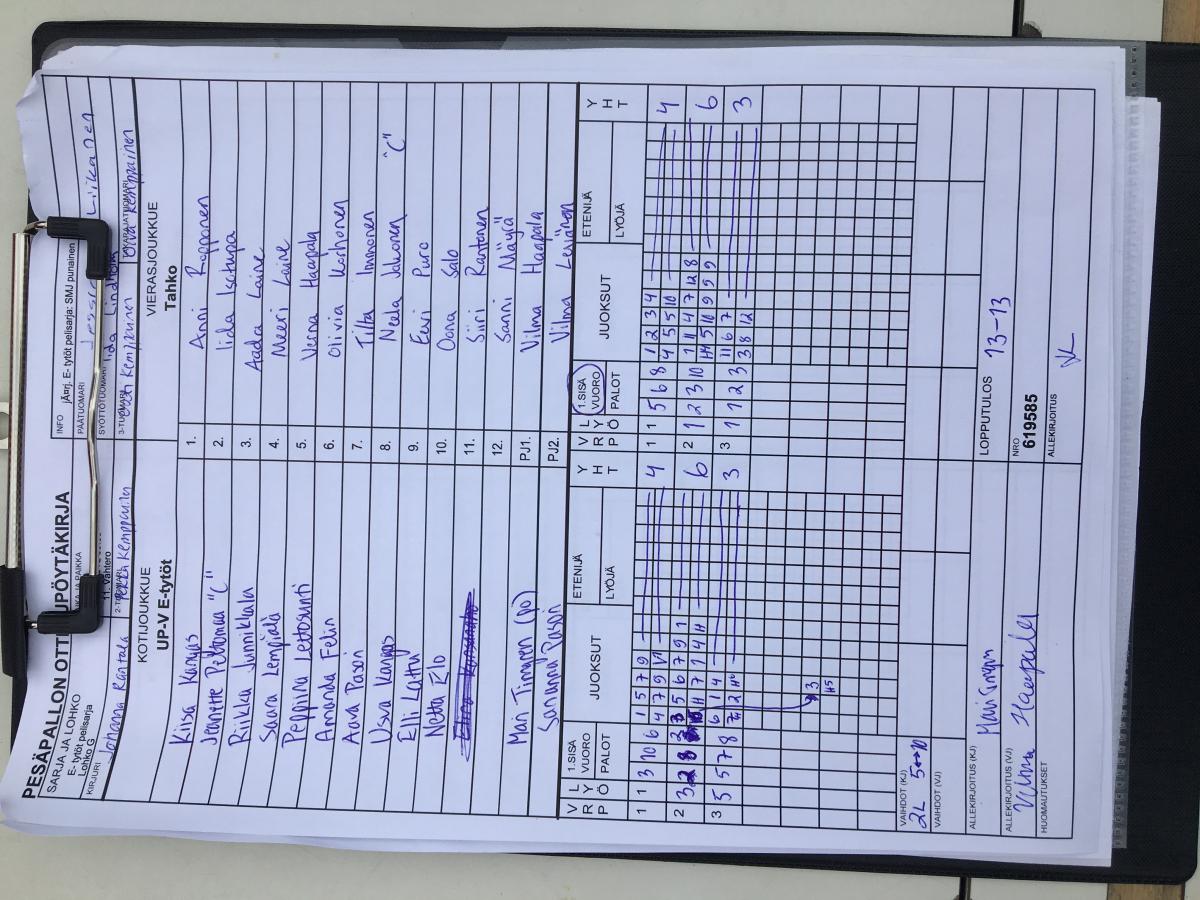 PESÄPALLON OTT UPÖYTÄKIRJA
SARJA JA LOHKO
E- tytöt pelisarja
Lohko G
KA JA PAIKKA
11. Vähtero
INFO
jÃ¤rj. E- tytöt pelisarja: SMJ punainen
PÄÄTUOMARI
Liikanen
SYÖTTÖTUOMARI
Iida Lindholm
KIRJURI
Johanna Rantala
2-TUOMARI
Kemppainen
3-TUOMARI
Kemppainen
TAKARAJATUOMARI
Kemppainen
KOTIJOUKKUE
UP-V E-tytöt
VIERASJOUKKUE
Tahko
Kiisa Kangas 1. Anni Ropponen
Jeanette Peltomaa "C" 2. Iida Isotupa
Riikka Junnikkala 3. Aada Laine
Saara Lempiälä 4. Meeri Laine
Peppiina Lehtosunti 5. Verna Haapala
Amanda Felin 6. Olivia Korhonen
Aava Pasoin 7. Tilta Immonen
Usva Kangas 8. Neela Jokonen "C"
Elli Lattu 9. Eevi Puro
Netta Eilo 10. Oona Salo
11. Siiri Rantanen
12. Sanni Näyrä
Mari Timgren (po) PJ1. Vilma Haapala
Sonjanna Pasoin PJ2. Vilma Leviänen
V R L Y P Ö 1.SISÄ VUORO PALOT JUOKSUT ETENIJÄ LYÖJÄ Y H T
V R L Y P Ö 1.SISÄ VUORO PALOT JUOKSUT ETENIJÄ LYÖJÄ Y H T
1 1 3 10 6 1 5 7 9 4
4 7 9 V1
1 1 5 6 8 1 2 3 4 4
4 5 5 10
2 3 8 5 6 7 9 1 6
7 1 4 H
2 1 2 3 10 1 11 4 7 12 8 6
H4 5 10 9 9 9
3 5 5 7 8 6 1 4 3
3
H5
3 1 1 2 3 11 6 7 3
3 8 12
VAIHDOT (KJ)
2L
VAIHDOT (VJ)
LOPPUTULOS
13-13
ALLEKIRJOITUS (KJ)
Mari Timgren
NRO
619585
ALLEKIRJOITUS (VJ)
Vilma Haapala
ALLEKIRJOITUS
HUOMAUTUKSET